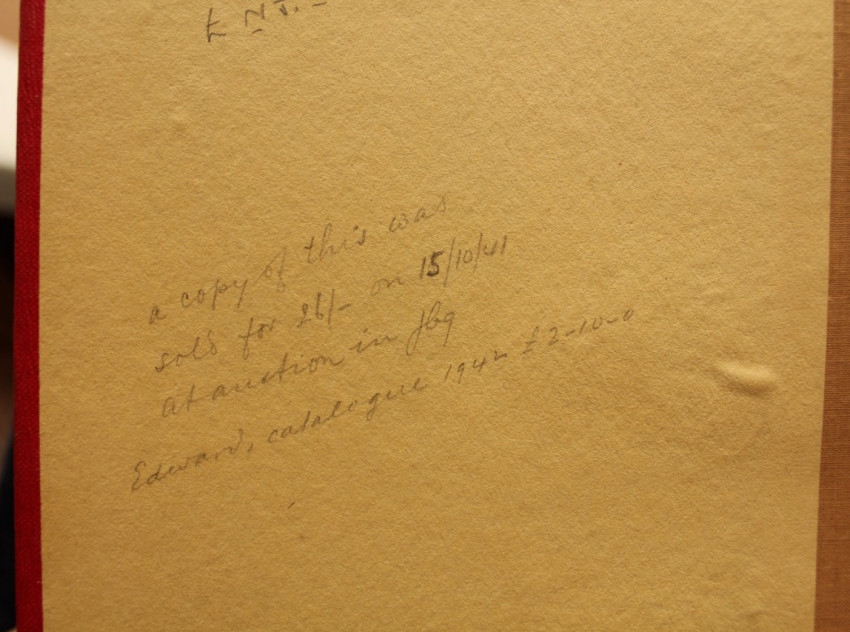 £ N J. -
a copy of this was
sold for 26/- on 15/10/41
at auction in Jbg
Edward, catalogue 1942 £2-10-0